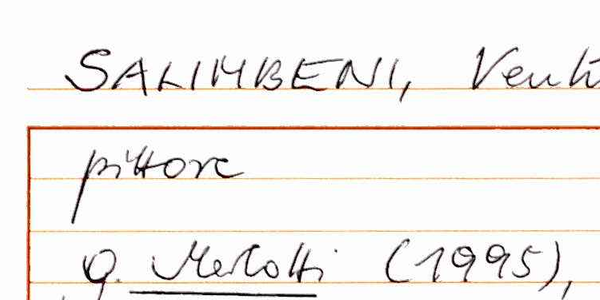 SALIMBENI, Ventu
pittore
G. Merlotti (1995),